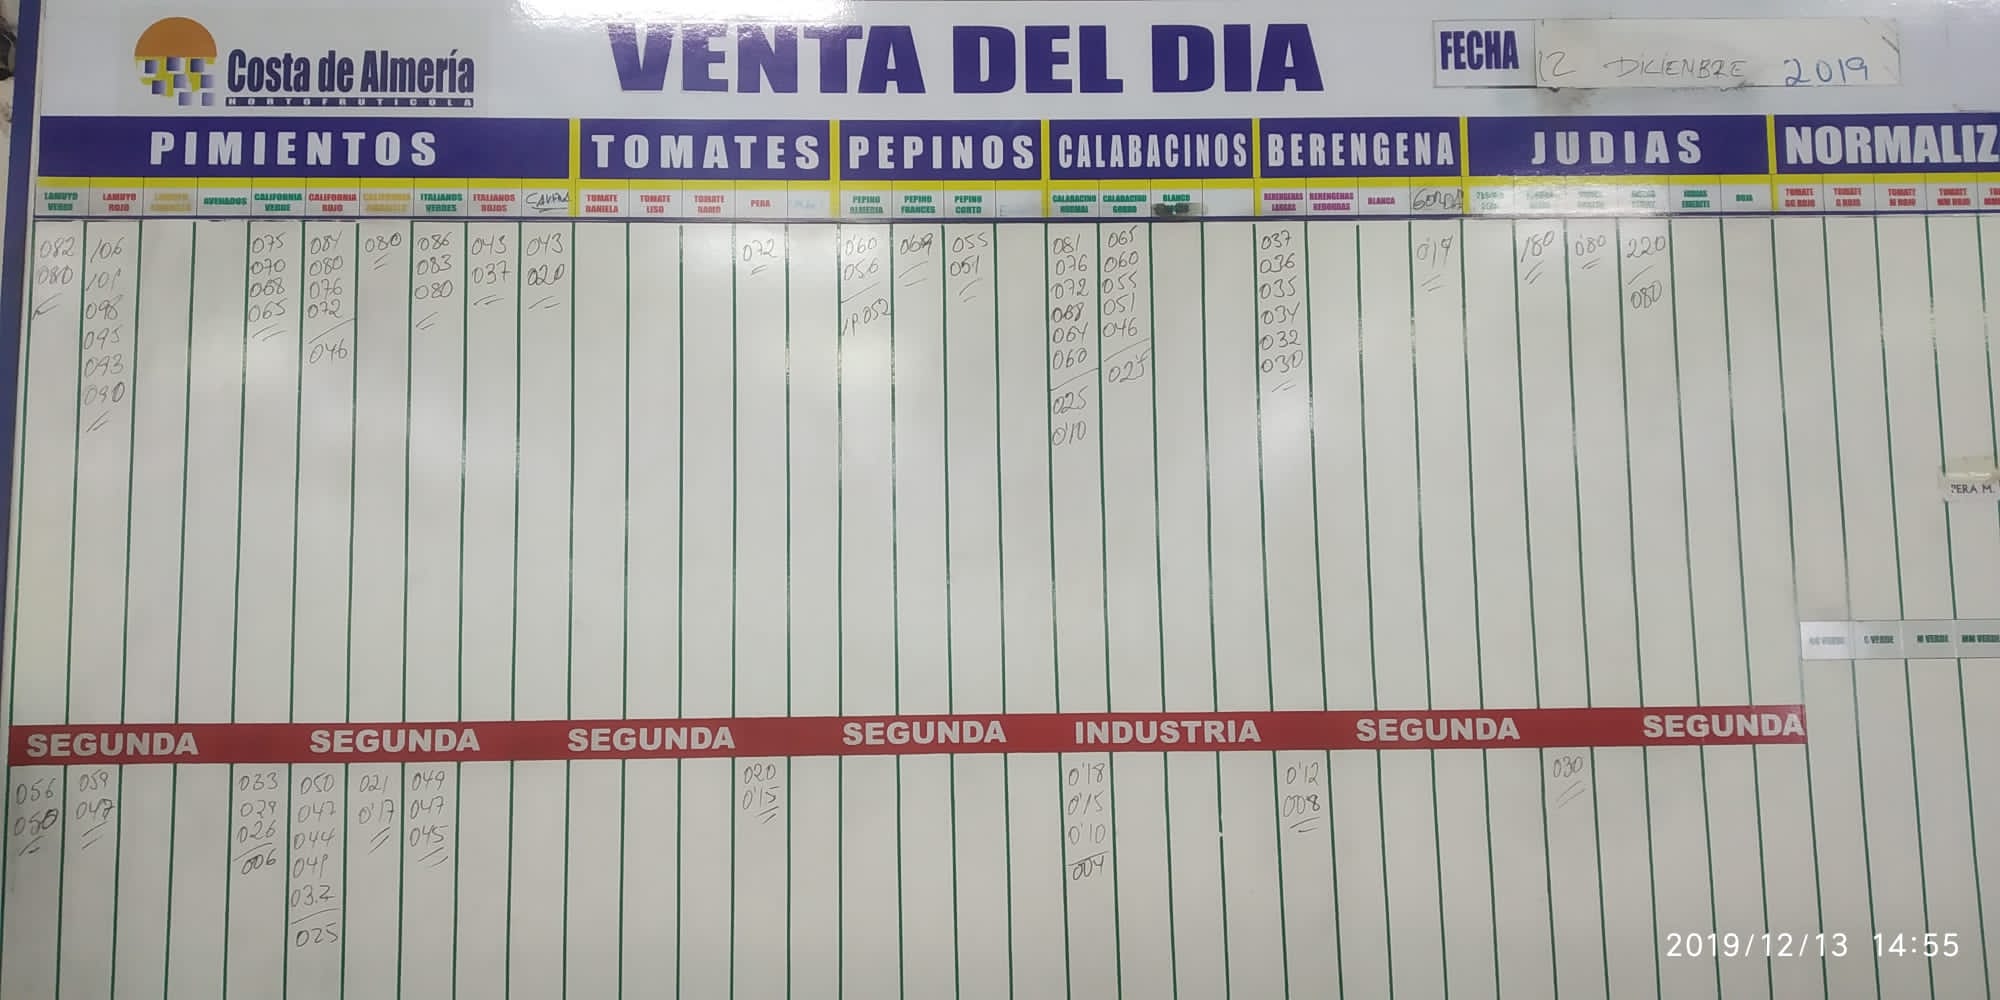 Costa de Almería
HORTOFRUTICOLA
VENTA DEL DIA
FECHA 12 DICIENBRE 2019
PIMIENTOS TOMATES PEPINOS CALABACINOS BERENGENA JUDIAS NORMALIZ
LAMUYO VERDE
LAMUYO ROJO
ASURADOS
CALIFORNIA VERDE
CALIFORNIA ROJO
CALIFORNIA
ITALIANOS VERDES
ITALIANOS ROJOS
TOMATE DANIELA
TOMATE LISO
TOMATE RAMO
PERA
PEPINO ALMERIA
PEPINO FRANCES
PEPINO CORTO
CALABACINO NORMAL
CALABACINO GORDO
BLANCO
BERENGENAS LARGAS
BERENGENAS REDONDAS
BLANCA
GORDA
ROJA
TOMATE GG ROJO
TOMATE G ROJO
TOMATE M ROJO
TOMATE MM ROJO
082 106 075 084 080 086 043 043 072 0'60 069 055 081 065 037 0'19 180 080 220
080 101 070 080 083 037 020 056 051 076 060 036 080
098 068 076 080 1P.052 072 055 035
095 065 072 068 051 034
093 046 064 046 032
090 060 025 030
025
0'10
PERA M.
G VERDE M VERDE MM VERDE
SEGUNDA SEGUNDA SEGUNDA SEGUNDA INDUSTRIA SEGUNDA SEGUNDA
056 059 033 050 021 049 020 0'18 0'12 030
050 047 029 047 0'17 047 0'15 0'15 008
026 044 045 0'10
006 041 004
032
025
2019/12/13 14:55